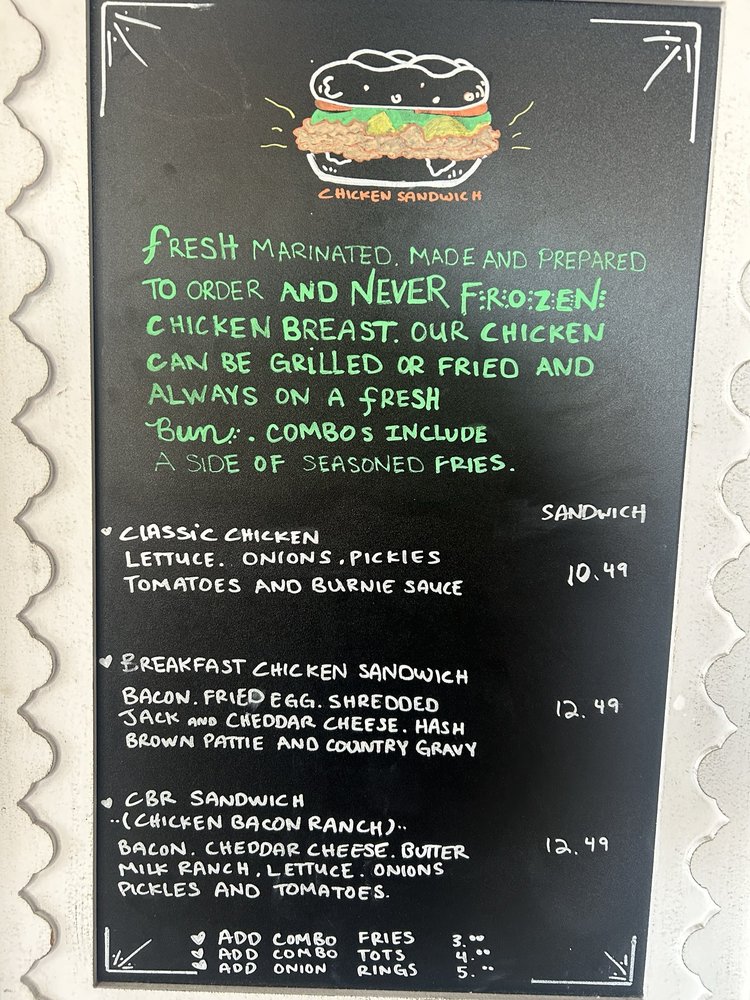 CHICKEN SANDWICH
FRESH MARINATED. MADE AND PREPARED
TO ORDER AND NEVER FROZEN
CHICKEN BREAST. OUR CHICKEN
CAN BE GRILLED OR FRIED AND
ALWAYS ON A FRESH
Bun. COMBOS INCLUDE
A SIDE OF SEASONED FRIES.
SANDWICH
CLASSIC CHICKEN
LETTUCE. ONIONS. PICKLES
TOMATOES AND BURNIE SAUCE 10.49
BREAKFAST CHICKEN SANDWICH
BACON. FRIED EGG. SHREDDED 12.49
JACK AND CHEDDAR CHEESE. HASH
BROWN PATTIE AND COUNTRY GRAVY
CBR SANDWICH
..(CHICKEN BACON RANCH)..
BACON. CHEDDAR CHEESE. BUTTER 12.49
MILK RANCH. LETTUCE. ONIONS
PICKLES AND TOMATOES.
ADD COMBO FRIES 3.00
ADD COMBO TOTS 4.00
ADD ONION RINGS 5.00